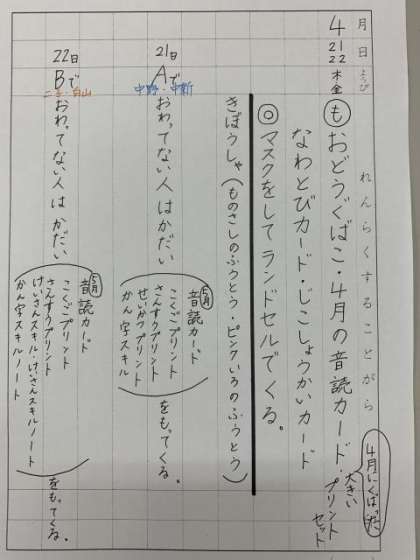 月 日 ようび れんらくすることがら
4 21 22 木 金
も おどうぐばこ・4月の音読カード・プリント
大きい
セット
4月にくばった
なわとびカード・じこしょうかいカード
◎マスクをしてランドセルでくる。
きぼうしゃ(ものさしのふうとう・ピンクいろのふうとう)
21日
Aで
中野・中新
おわってない人はかだい
5月
音読カード
こくごプリント
さんすうプリント
せいかつプリント
かん字スキル
をもってくる。
22日
Bで
おわってない人はかだい
5月
音読カード
こくごプリント
さんすうプリント
けいさんスキル・けいさんスキルノート
かん字スキルノート
をもってくる。